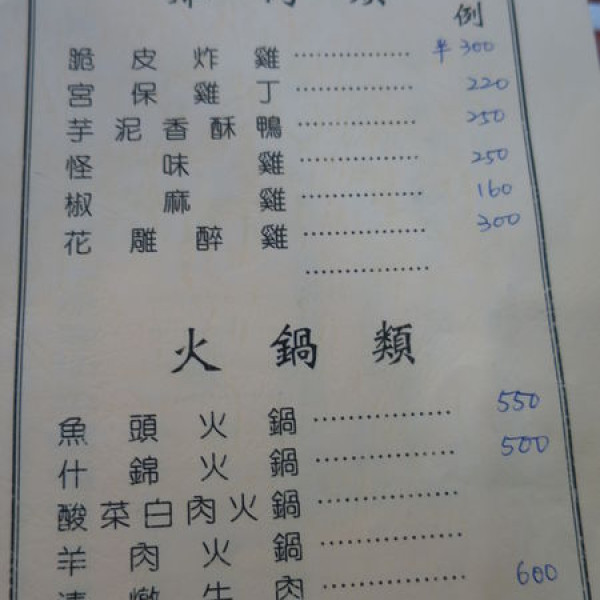 例
脆皮炸雞 半300
宮保雞丁 220
芋泥香酥鴨 250
怪味雞 250
椒麻雞 160
花雕醉雞 300
火鍋類
魚頭火鍋 550
什錦火鍋 500
酸菜白肉火鍋
羊肉火鍋
清燉牛肉 600